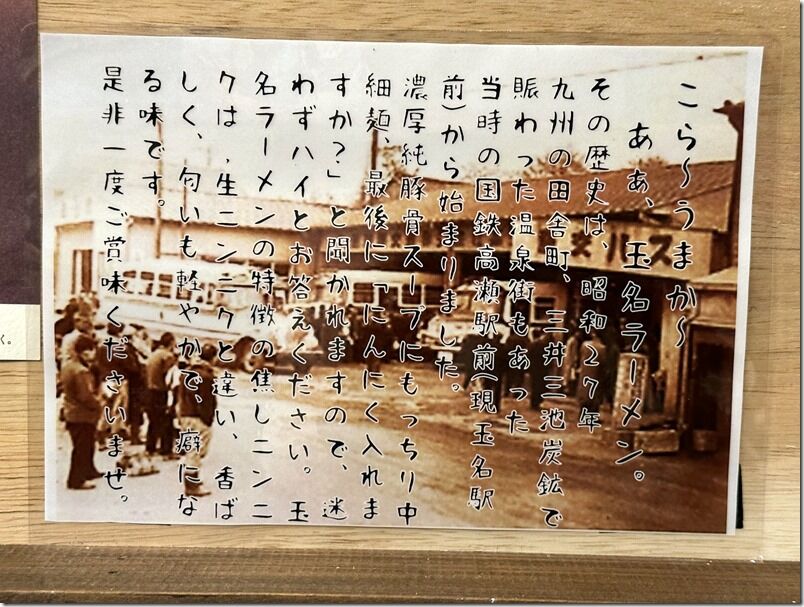 こら〜うまか〜
あぁ、玉名ラーメン。
その歴史は、昭和27年
九州の田舎町、三井三池炭鉱で
賑わった温泉街もあった
当時の国鉄高瀬駅前(現玉名駅
前)から始まりました。
濃厚純豚骨スープにもっちり中
細麺、最後に「にんにく入れま
すか?」と聞かれますので、迷
わずハイとお答えください。玉
名ラーメンの特徴の焦しニンニ
クは、生ニンニクと違い、香ば
しく、匂いも軽やかで、癖にな
る味です。
是非一度ご賞味くださいませ。
く。